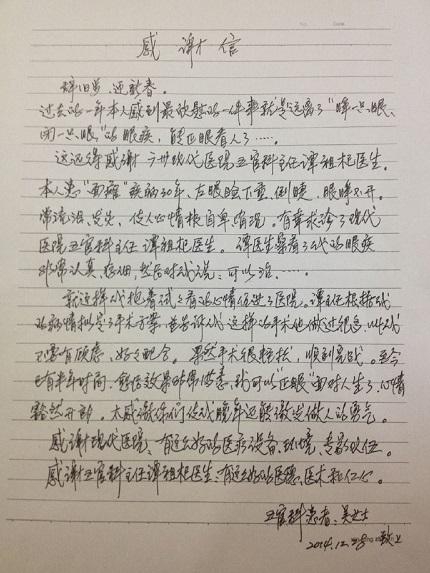 感谢信
辞旧岁、迎新春。
过去的一年本人感到最欣慰的一件事就是远离了“睁一只眼、
闭一只眼”的眼疾，能正眼看人了……。
这还得感谢 广州现代医院五官科主任谭祖杞医生。
本人患“面瘫”疾病30年，左眼睑下垂，倒睫，眼睁不开。
常流泪、炎炎，使人心情极自卑、情况。有幸求诊了现代
医院五官科主任谭祖杞医生。谭医生查看了我的眼疾
非常认真仔细，然后对我说：可以治……。
就这样我抱着试试看的心情住进了医院。谭主任根据我
的病情拟定了手术方案，并告诉我这样的手术他做过很多，叫我
不要有顾虑，好好配合。果然手术很精致、顺利完成。至今
已有半年时间，愈后效果非常满意，我可以“正眼”面对人生了，心情
豁然开朗。太感激你们使我晚年还能激发做人的勇气。
感谢现代医院，有这么好的医疗设备、环境、专家队伍。
感谢五官科主任谭祖杞医生，有这么好的医德、医术和仁心。
五官科患者：吴女士
2014.12.28 致上